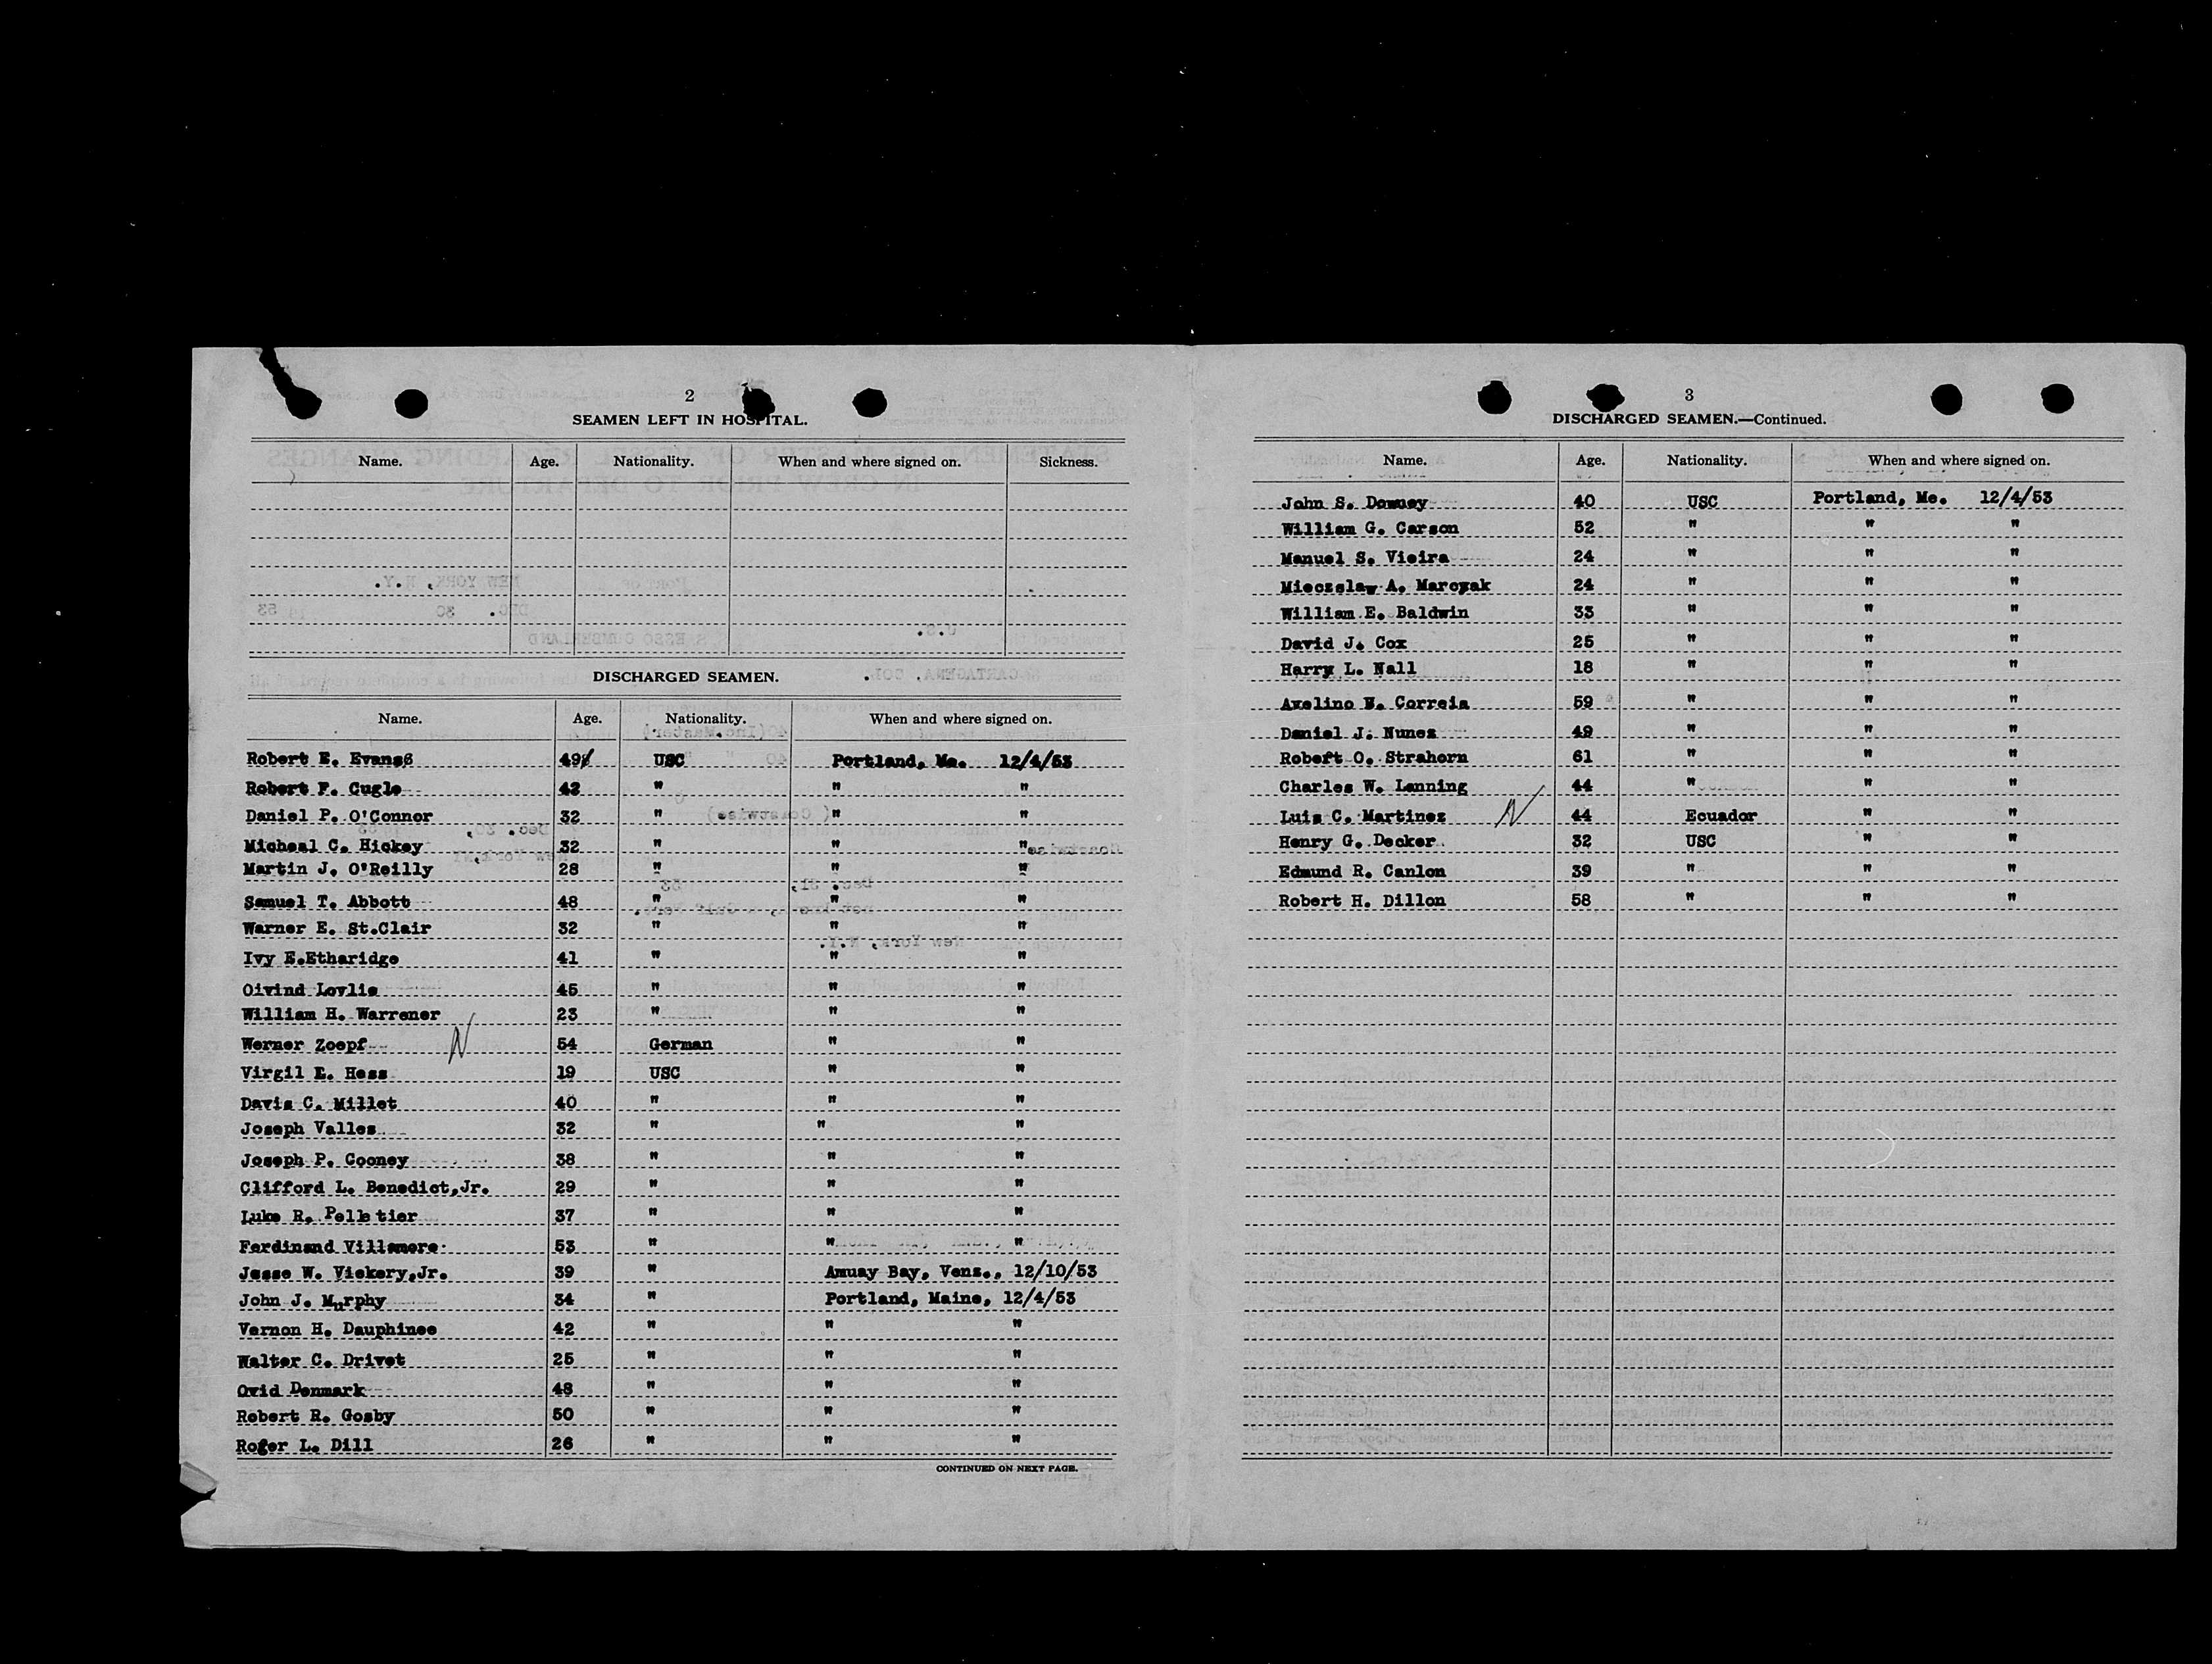 2
SEAMEN LEFT IN HOSPITAL.
Name. Age. Nationality. When and where signed on. Sickness.
DISCHARGED SEAMEN.
Name. Age. Nationality. When and where signed on.
Robert E. Evans 49 USC Portland, Me. 12/4/53
Robert F. Cugle 42 " " "
Daniel P. O'Connor 32 " " "
Micheal C. Hickey 32 " " "
Martin J. O'Reilly 28 " " "
Samuel T. Abbott 48 " " "
Warner E. St.Clair 32 " " "
Ivy E.Etharidge 41 " " "
Oivind Lovlie 45 " " "
William H. Warrener 23 " " "
Werner Zoepf N 54 German " "
Virgil E. Hess 19 USC " "
Davis C. Millet 40 " " "
Joseph Valles 32 " " "
Joseph P. Cooney 38 " " "
Clifford L. Benedict,Jr. 29 " " "
Luke R. Pelletier 37 " " "
Ferdinand Villamere 53 " " "
Jesse W. Vickery,Jr. 39 " Amuay Bay, Venz., 12/10/53
John J. Murphy 34 " Portland, Maine, 12/4/53
Vernon H. Dauphinee 42 " " "
Walter C. Drivet 25 " " "
Ovid Denmark 48 " " "
Robert R. Gosby 50 " " "
Roger L. Dill 26 " " "
CONTINUED ON NEXT PAGE.
3
DISCHARGED SEAMEN.—Continued.
Name. Age. Nationality. When and where signed on.
John S. Downey 40 USC Portland, Me. 12/4/53
William G. Carson 52 " " "
Manuel S. Vieira 24 " " "
Mieczslaw A. Marczak 24 " " "
William E. Baldwin 33 " " "
David J. Cox 25 " " "
Harry L. Nall 18 " " "
Axelino N. Correia 59 " " "
Daniel J. Nunez 49 " " "
Robert O. Strahorn 61 " " "
Charles W. Lanning 44 " " "
Luis C. Martinez N 44 Ecuador " "
Henry G. Decker 32 USC " "
Edmund R. Canlon 39 " " "
Robert H. Dillon 58 " " "